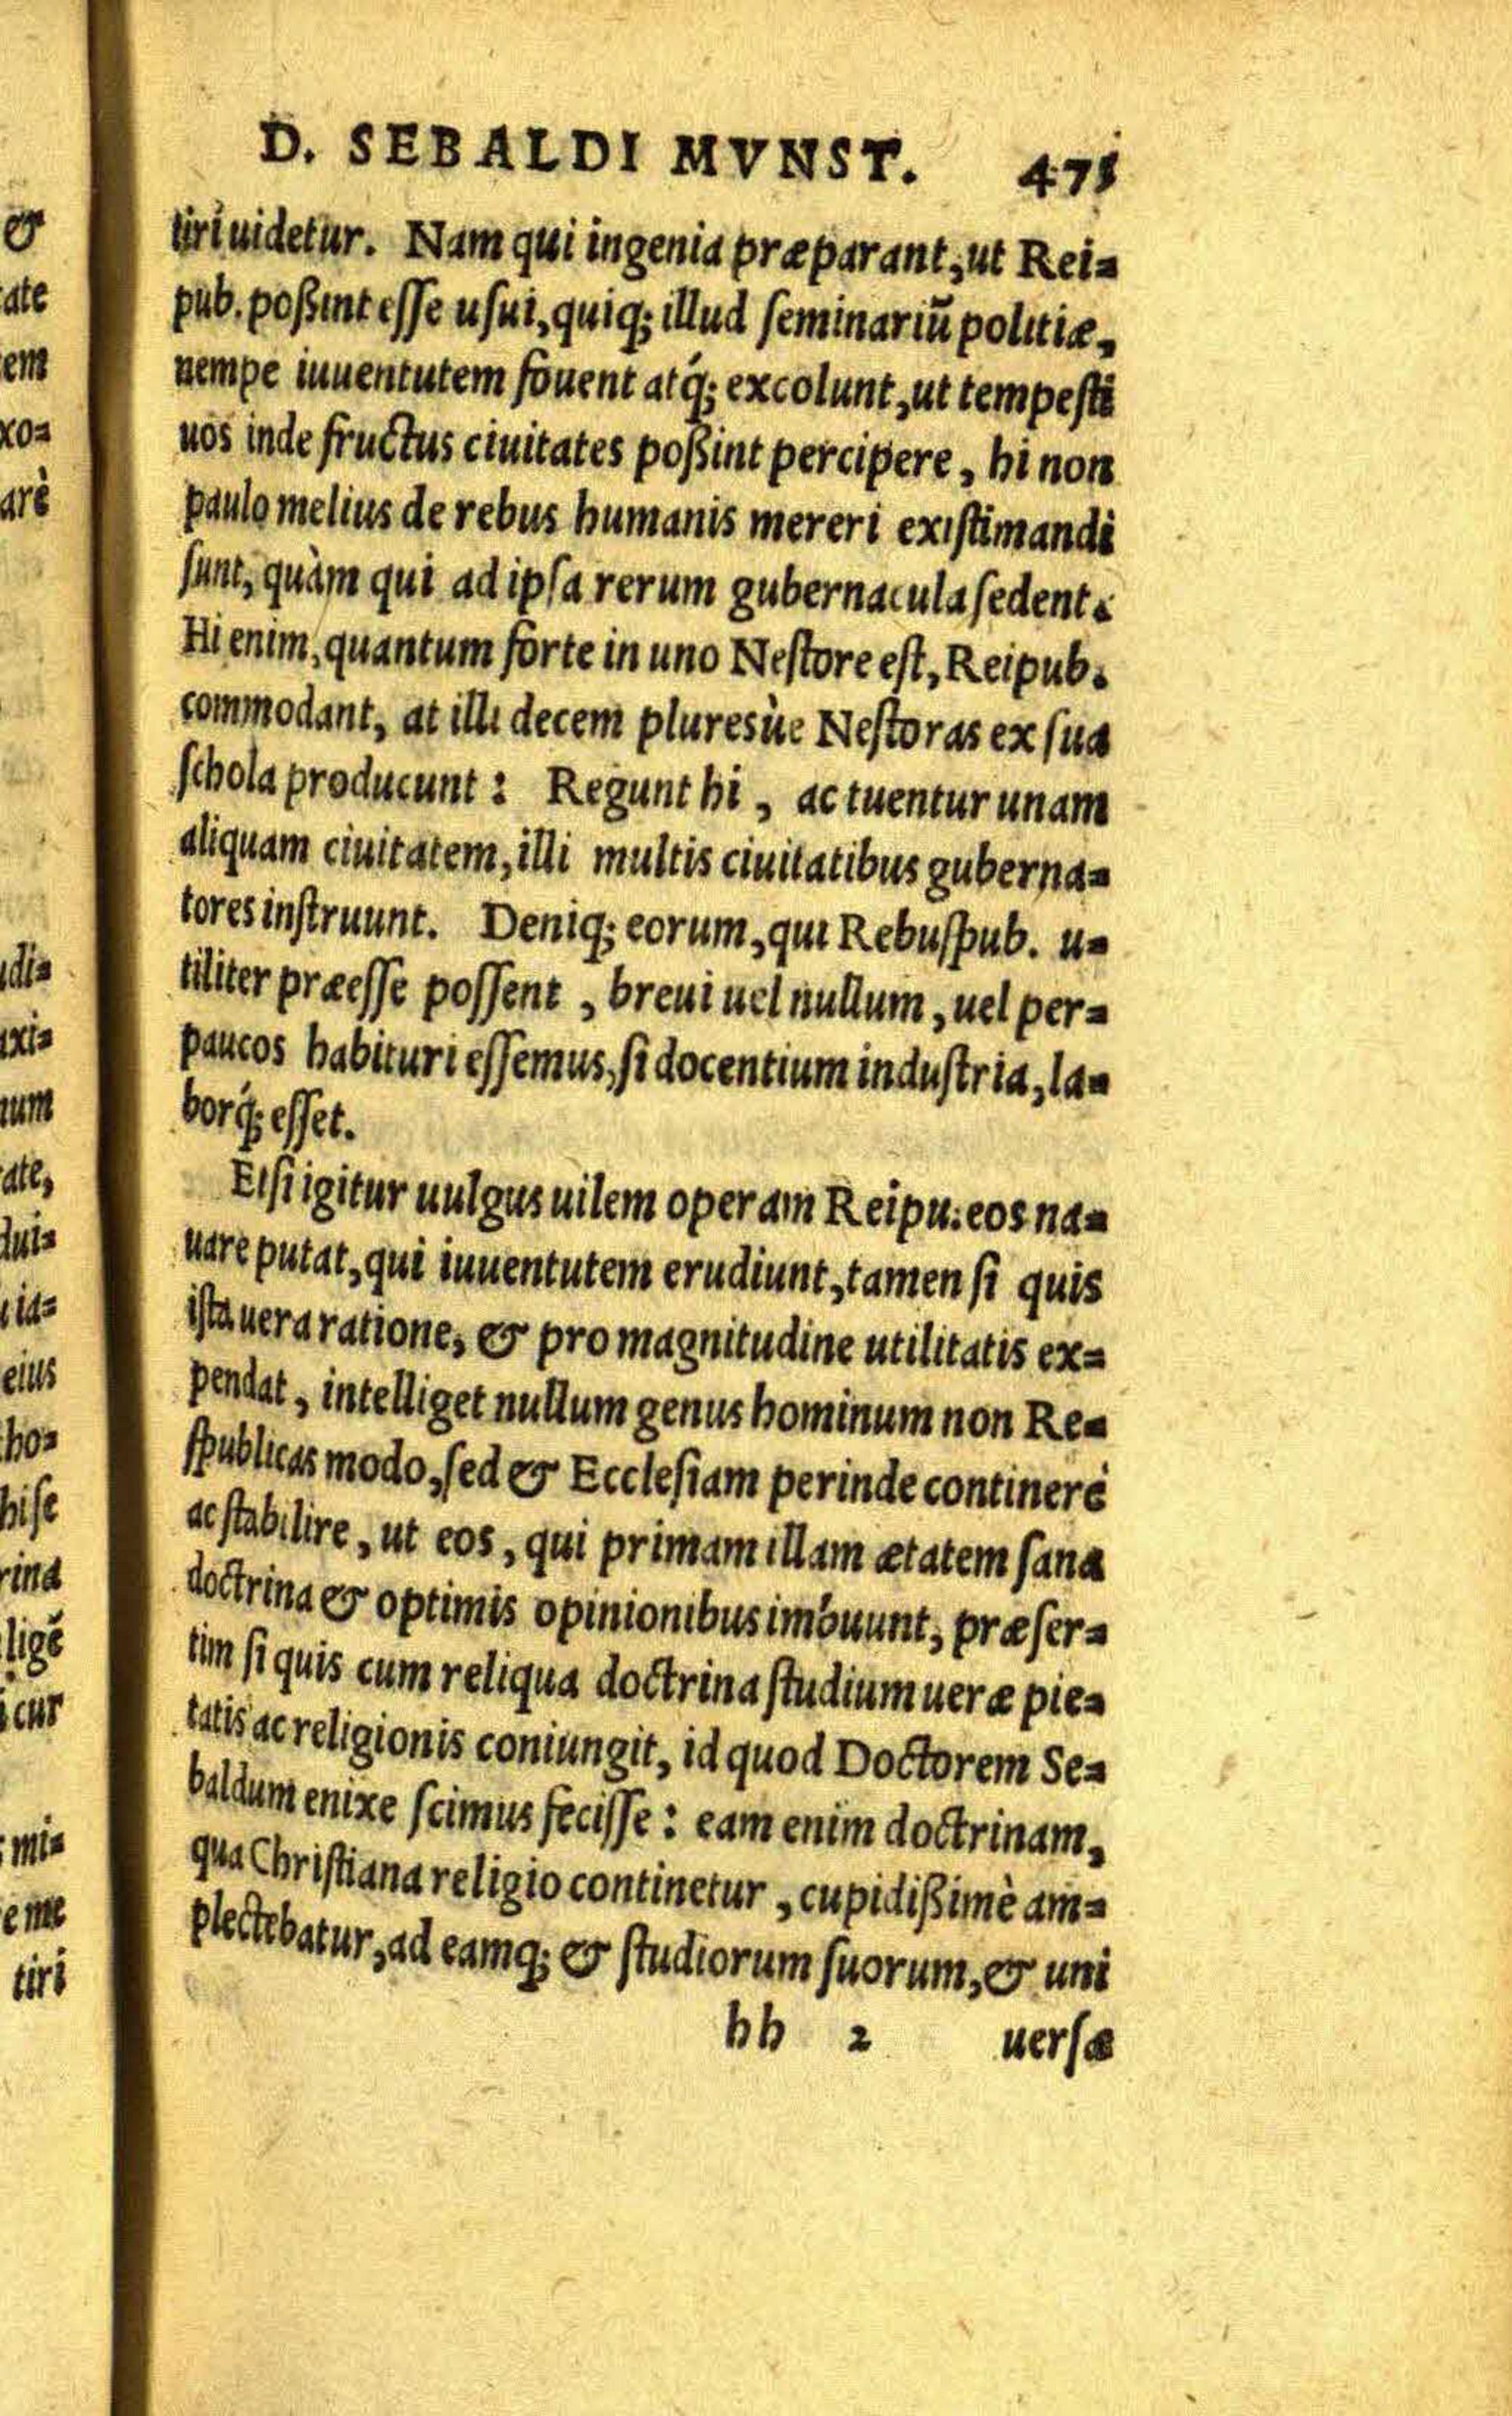 D. SEBALDI MVNST. 471
tiri uidetur. Nam qui ingenia præparant, ut Rei=
pub. poßint esse usui, quiq; illud seminariũ politiæ,
nempe iuuentutem fouent atq́; excolunt, ut tempesti
uos inde fructus ciuitates poßint percipere, hi non
paulo melius de rebus humanis mereri existimandi
sunt, quàm qui ad ipsa rerum gubernacula sedent.
Hi enim, quantum forte in uno Nestore est, Reipub.
commodant, at illi decem pluresùe Nestoras ex sua
schola producunt: Regunt hi, ac tuentur unam
aliquam ciuitatem, illi multis ciuitatibus guberna=
tores instruunt. Deniq; eorum, qui Rebuspub. u=
tiliter præesse possent, breui uel nullum, uel per=
paucos habituri essemus, si docentium industria, la=
borq́; esset.
Etsi igitur uulgus uilem operam Reipu. eos na=
uare putat, qui iuuentutem erudiunt, tamen si quis
ista uera ratione, & pro magnitudine utilitatis ex=
pendat, intelliget nullum genus hominum non Re=
spublicas modo, sed & Ecclesiam perinde continere
ac stabilire, ut eos, qui primam illam ætatem sana
doctrina & optimis opinionibus imbuunt, præser=
tim si quis cum reliqua doctrina studium ueræ pie=
tatis ac religionis coniungit, id quod Doctorem Se=
baldum enixe scimus fecisse: eam enim doctrinam,
qua Christiana religio continetur, cupidißimè am=
plectebatur, ad eamq; & studiorum suorum, & uni
hh 2 uersæ
&
ate
em
xo=
arè
di=
axi=
num
ate,
dui=
ia=
eius
ho=
hise
rina
ligẽ
i cur
mi=
e me
tiri